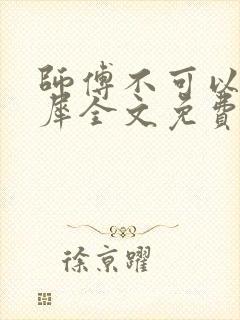 師傅不可以
犀全文免費
徐京躍